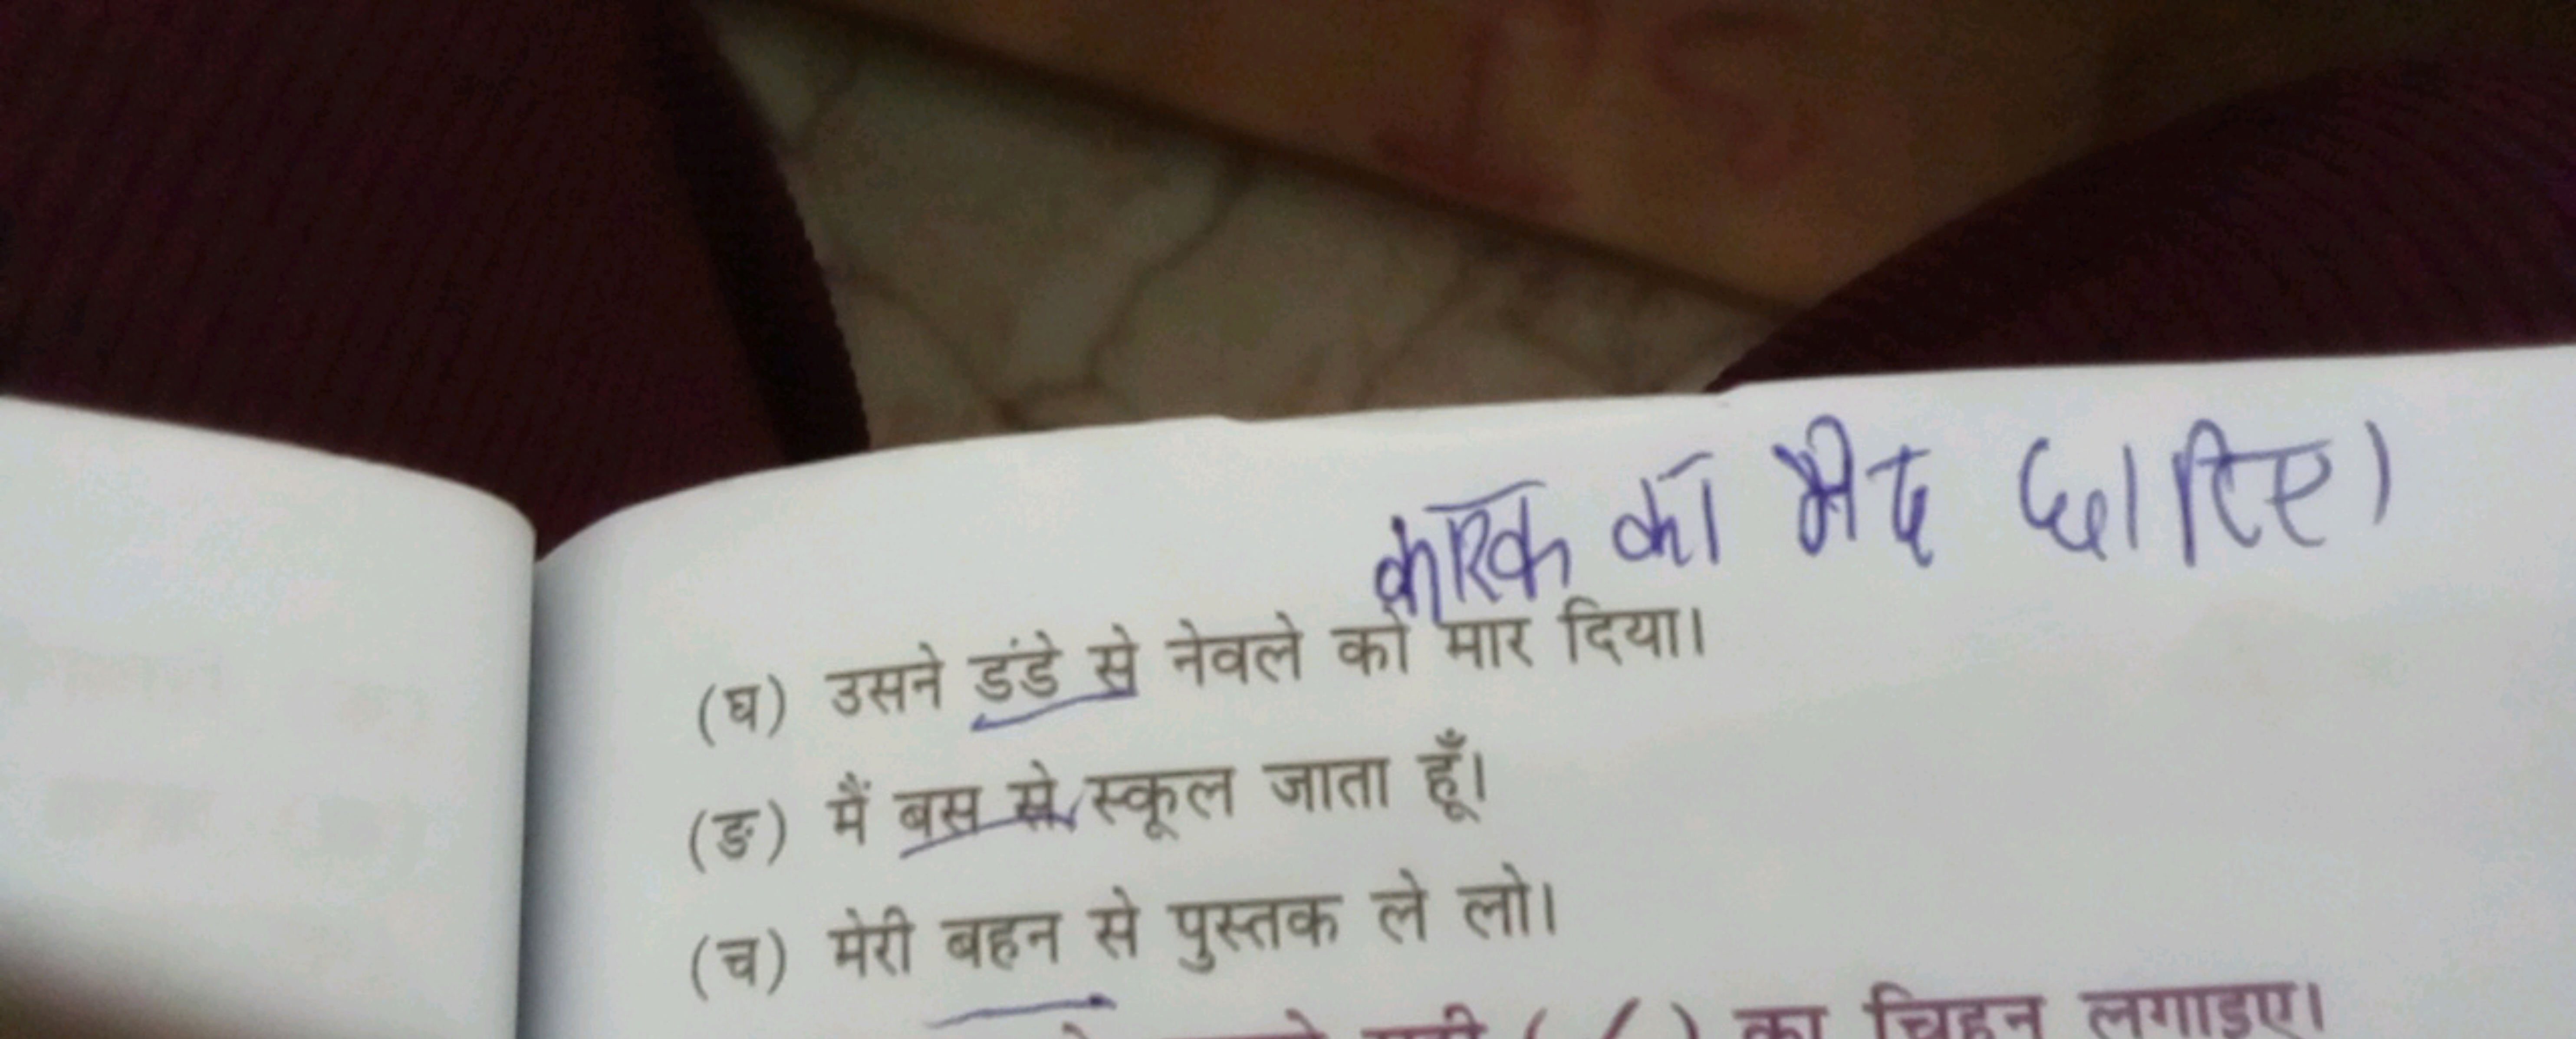 कारक का भेद छाटिए।
(घ) उसने डंडे से नेवले को मार दिया।
(ङ) मैं बस से स्कूल जाता हूँ।
(च) मेरी बहन से पुस्तक ले लो।
का चिह्न लगाइए।